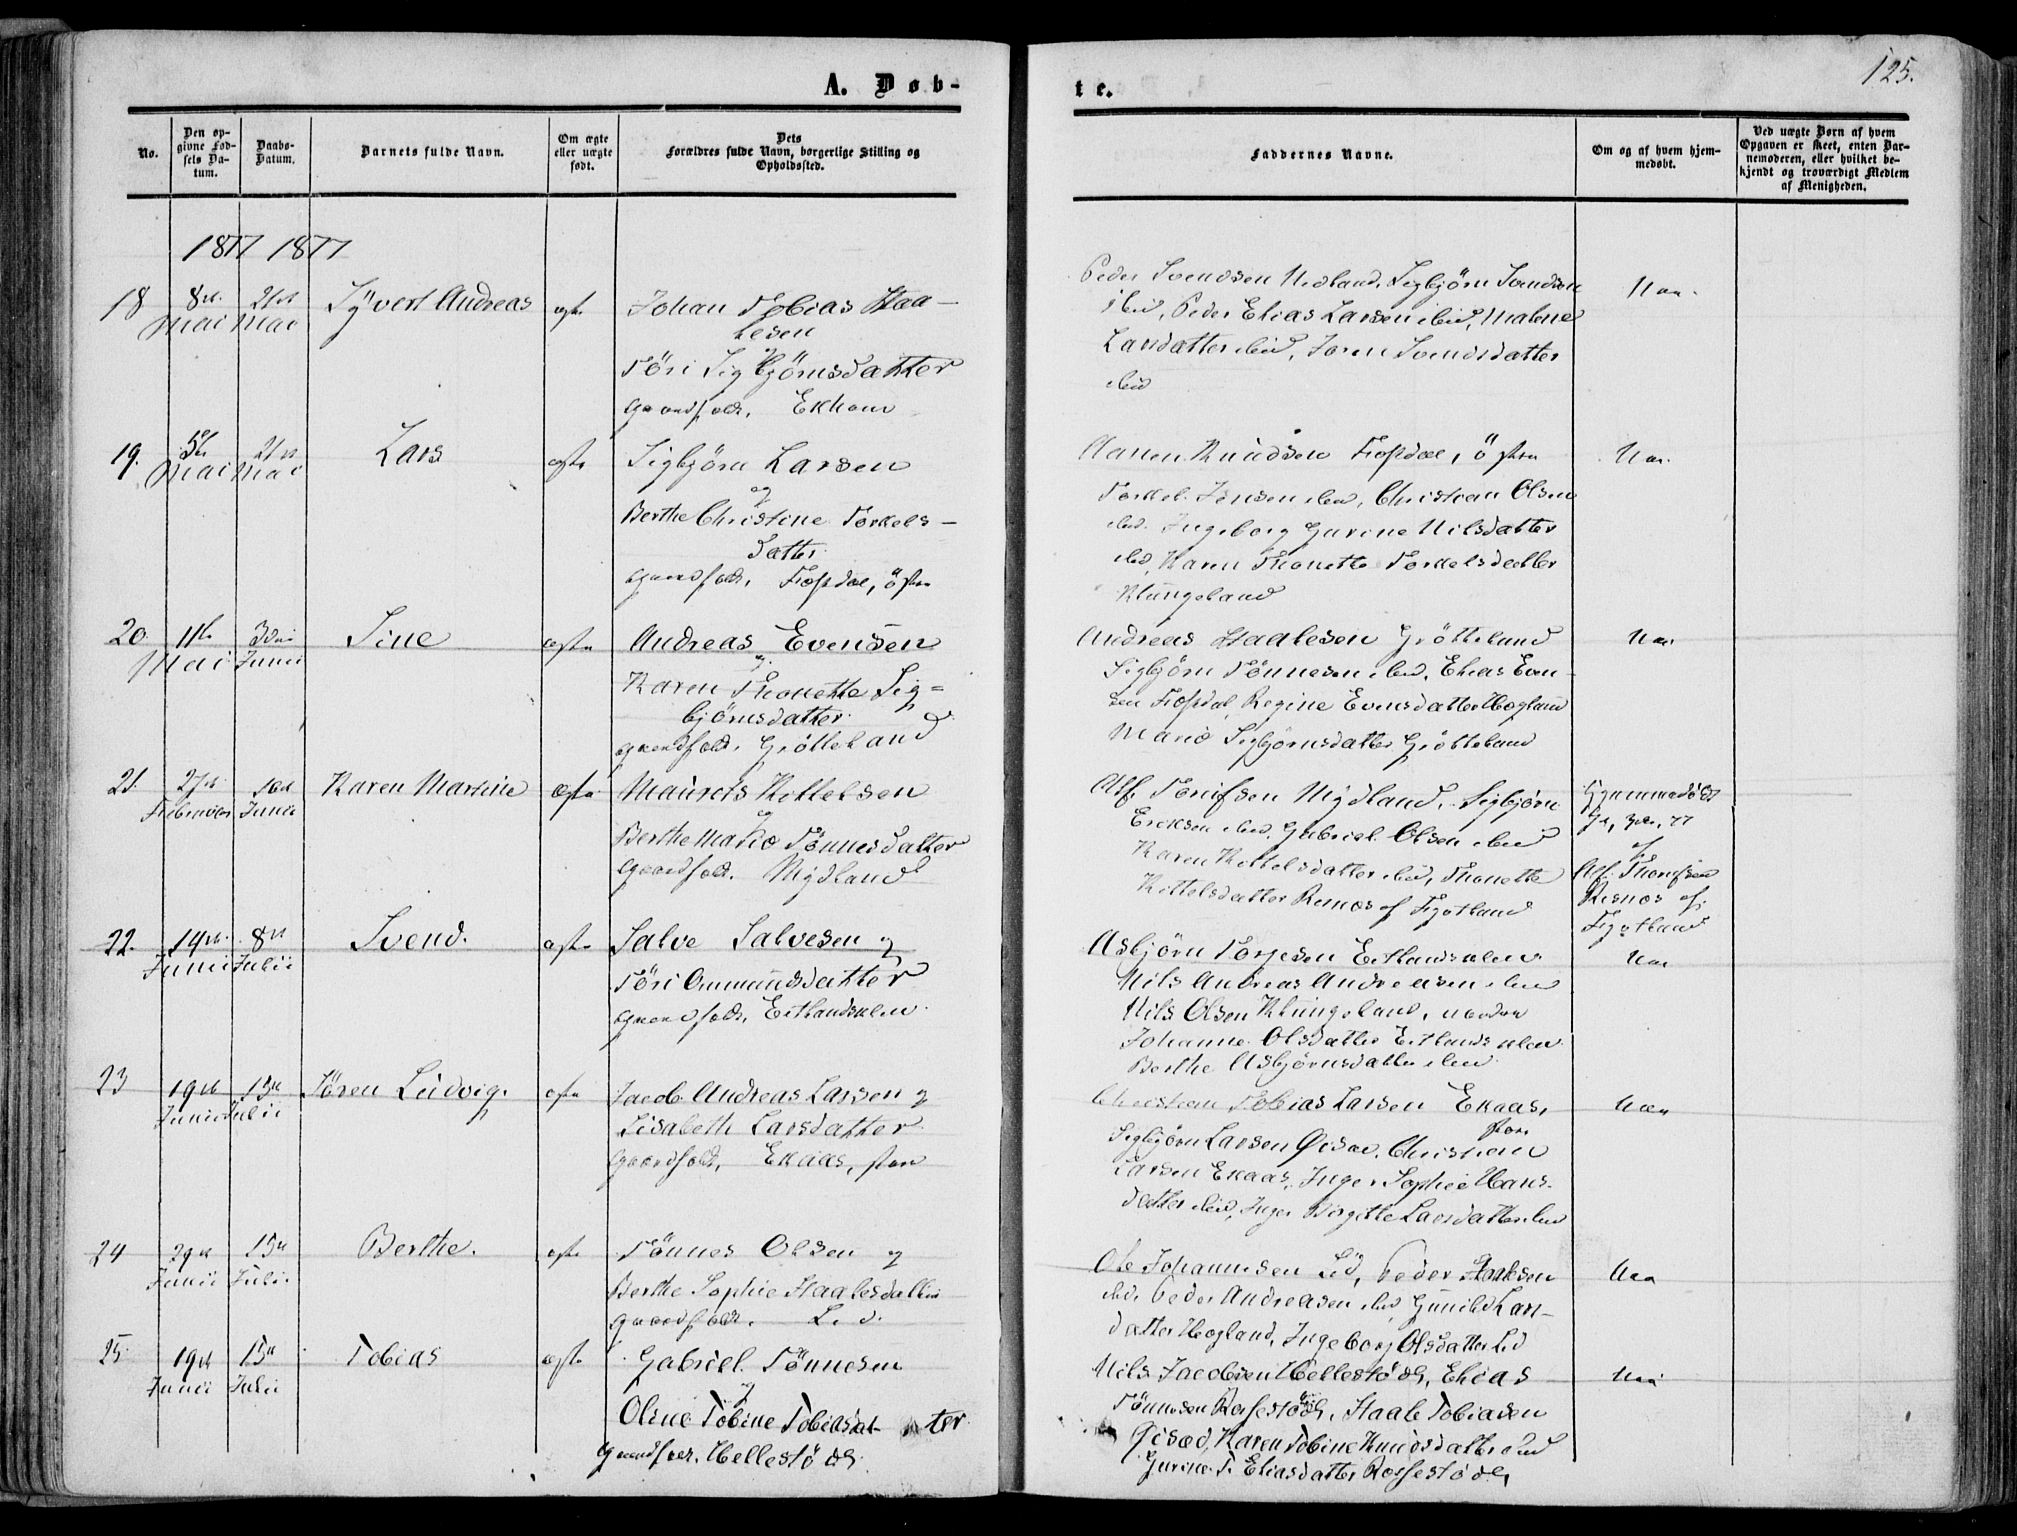 A. Døb-
te.
125.
No.
Den op-
givne Fød-
sels Da-
tum.
Daabs-
Datum.
Barnets fulde Navn.
Om ægte
eller uægte
født.
Dets
Forældres fulde Navn, borgerlige Stilling og
Opholdssted.
Faddernes Navne.
Om og af hvem hjem-
medøbt.
Ved uægte Børn af hvem
Opgaven er skeet, enten Bar-
nemoderen, eller hvilket be-
kjendt og troværdigt Medlem
af Menigheden.
1877 1877
18 8de Mai 21de Mai Syvert Andreas ægte
Johan Tobias Staa-
lesen
og
Töri Sigbjörnsdatter
Gaardfolk. Ekhom
Peder Svendsen Nedland, Sigbjörn Svendsen
ibid, Peder Elias Larsen ibid, Malene
Larsdatter ibid, Joren Svendsdatter
ibid
Naa.
19. 5te Mai 21de Mai Lars ægte
Sigbjörn Larsen
og
Berthe Christine Torkels-
datter
Gaardfolk. Fossdal, östre
Aanen Knudsen Fossdal, östre
Torkel Jensen ibid, Christian Olsen
ibid. Ingeborg Gurine Nilsdatter
ibid, Karen Thonette Torkelsdatter
Klungeland
Naa.
20. 11te Mai 3die Junii Sine ægte
Andreas Evensen
og
Karen Thonette Sig=
björnsdatter
Gaardfolk. Gröteland
Andreas Staalesen Grötteland
Sigbjörn Tönnesen ibid, Elias Even-
sen Fossdal, Regine Evensdatter Hogland
Marie Sigbjörnsdatter Grötteland
Naa
21. 27de Februar 10de Junii Karen Martine ægte
Maurets Kittelsen
og
Berthe Marie Tönnesdatter
Gaardfolk. Mydland
Alf Tönissen Mydland, Sigbjörn
Ericksen ibid, Gabriel Olsen ibid
Karen Kittelsdatter ibid, Thonette
Kittelsdatter Resnæs af Figotland
Hjemmedöbt
77
af
Alf Thonissen
Resnæs af
Figotland
22. 14de Junii 8de Julii Svend. ægte
Salve Salvesen og
Töri Ommundsdatter
Gaardfolk, Eitlandsalen
Asbjörn Torjesen Eitlandsalen
Nils Andreas Andreasen ibid
Nils Olsen Klungeland, nordre
Johanne Olsdatter Eitlandsalen
Berthe Asbjörnsdatter ibid
Naa
23 19de Junii 15de Julii Sören Ludvig. ægte
Jacob Andreas Larsen og
Lisabeth Larsdatter
Gaardfolk, Ekaas, store
Christian Tobias Larsen Ekaas,
store
Sigbjörn Larsen Øisæd, Christian
Larsen Ekaas, Inger Sophie Hans-
datter ibid, Inger Birgitte Larsdatter ibid
Naa
24 29de Junii 15de Julii Berthe. ægte
Tönnes Olsen og
Berthe Sophie Staalesdatter
Gaardfolk. Lid.
Ole Johannesen Lid, Peder Staalesen
ibid. Peder Andreasen ibid, Gunild Lars-
datter Hogland, Ingeborg Olsdatter Lid
Naa
25. 19de Junii 15de Julii Tobias ægte
Gabriel Tönnesen
og
Oline Tobine Tobiasdatter
Gaardfolk. Hellestöde
Nils Jacobsen Hellestöde, Elias
Tönnesen Rossestöde, Staale Tobiasen
Øisæd, Karen Tobine Knudsdatter ibid
Gurine T. Eliasdatter Rossestöde
Naa